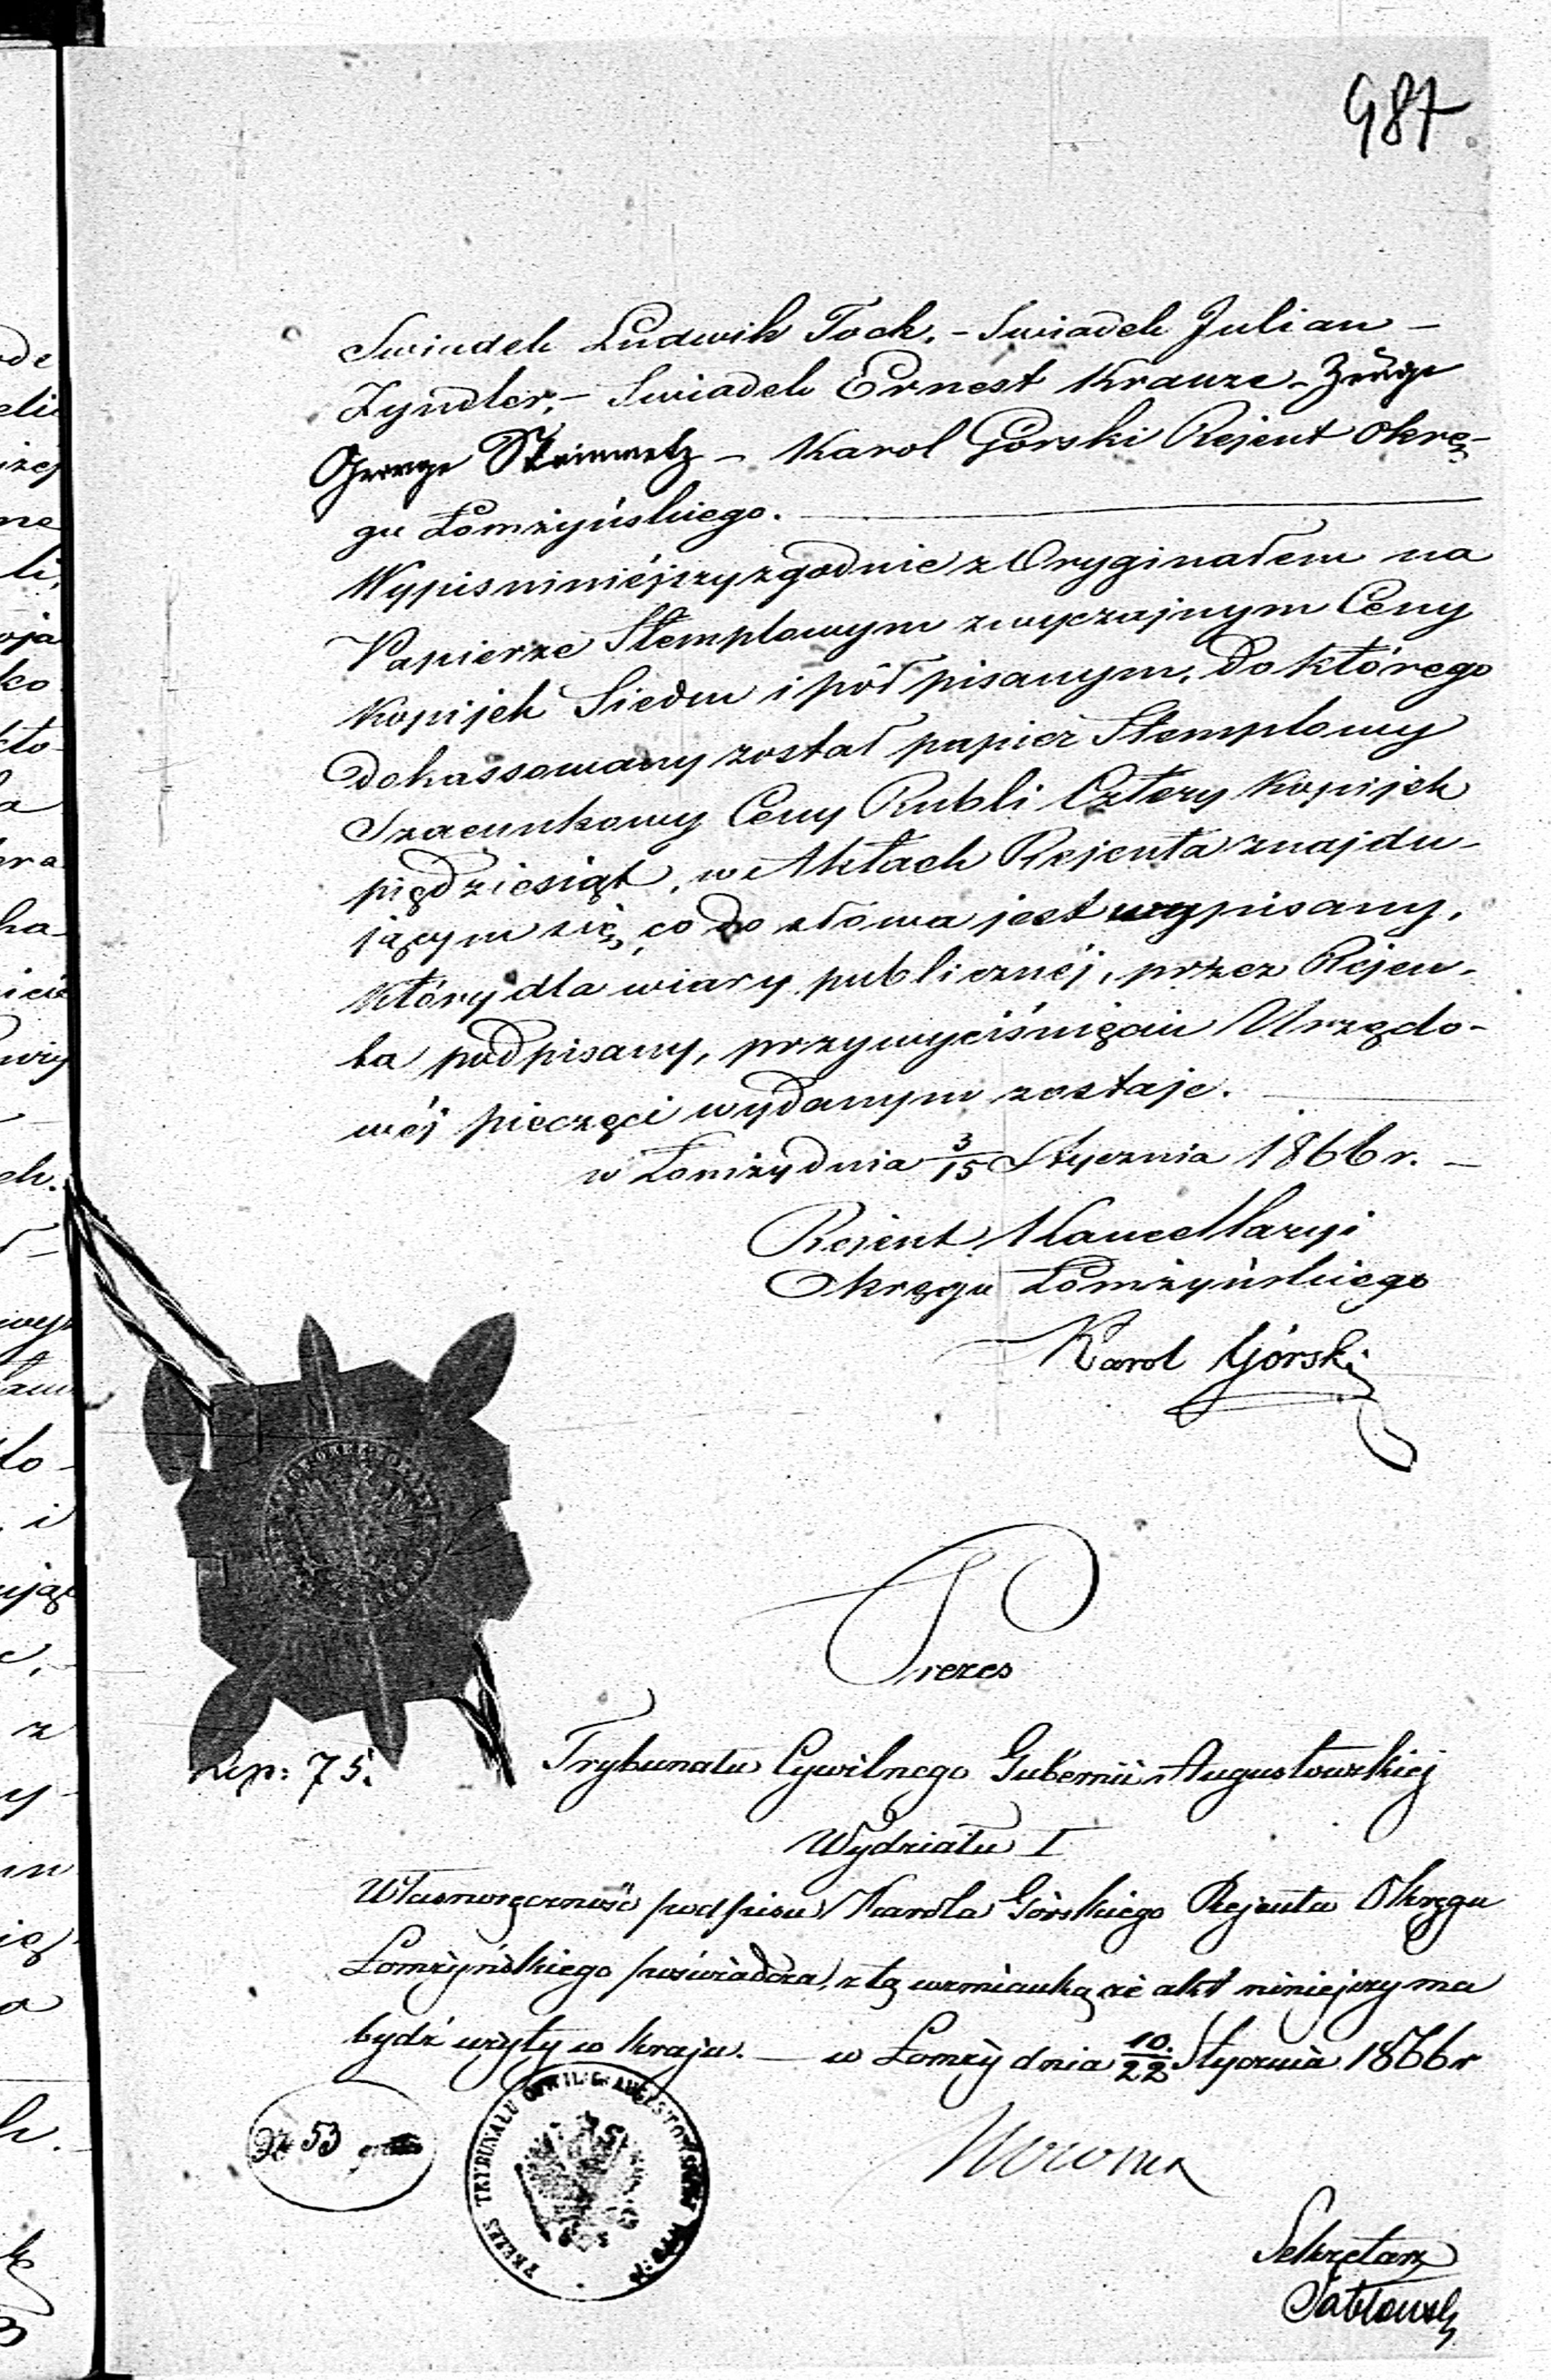 987
Swiadek Ludwik Tock. – Swiadek Julian –
Zyndler, – Swiadek Ernest Krauze –
George Steinmetz – Karol Górski Rejent Okrę-
gu Łomżyńskiego.
Wypis niniéjszy zgodnie z Oryginałem na
Papierze Stemplowym zwyczajnym Ceny
Kopijek Siedm i pół pisanym, do którego
dokassowany został papier Stemplowy
Szacunkowy Ceny Rubli Cztery Kopijek
piędziesiąt, w Aktach Rejenta znajdu-
jącym się, co do słowa jest wypisany,
który dla wiary publicznéj, przez Rejen-
ta podpisany, przy wyciśnięciu Urzędo-
wéj pieczęci wydanym zostaje.
w Łomży dnia 3/15 Stycznia 1866 r. –
Rejent Kancellaryi
Okręgu Łomżyńskiego
Karol Górski
Prezes
Rep: 75.
Trybunału Cywilnego Gubernii Augustowskiej
Wydziału I
Własnoręczność podpisu Karola Górskiego Rejenta Okręgu
Łomżyńskiego poświadcza, z tą wzmianką że akt niniejszy ma
bydź użyty w kraju. – w Łomży dnia 10/22 Stycznia 1866 r
№ 53
PREZES TRYBUNAŁU CYWIL: G: AUGUSTOWSKIEJ
Sekretarz